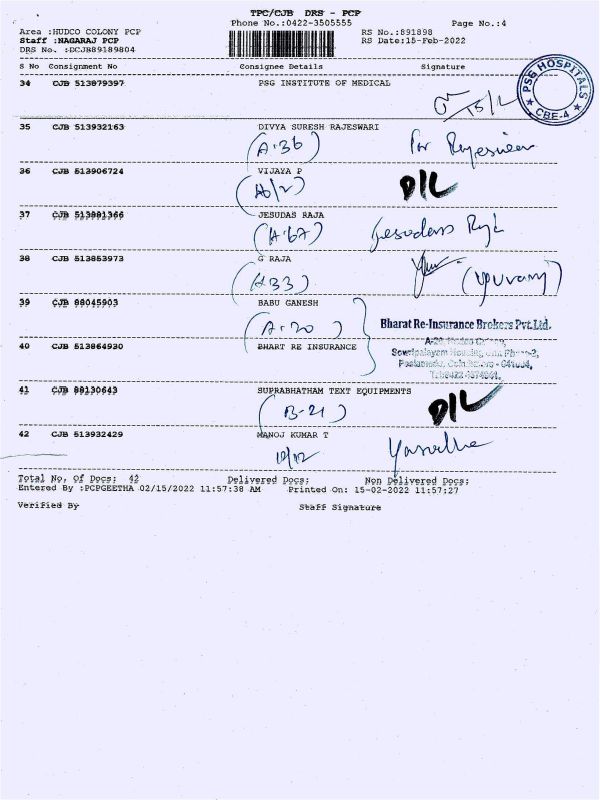 TPC/CJB DRS - PCP
Phone No.:0422-3505555 Page No.:4
Area :HUDCO COLONY PCP RS No.:891898
Staff :NAGARAJ PCP RS Date:15-Feb-2022
DRS No. :DCJB89189804
S No Consignment No Consignee Details Signature
34 CJB 513879397 PSG INSTITUTE OF MEDICAL
PSG HOSPITALS CBE-4
15/2
35 CJB 513932163 DIVYA SURESH RAJESWARI
(A-36) For Rajeswari
36 CJB 513906724 VIJAYA P
D/L
37 CJB 513881366 JESUDAS RAJA
(A-67) Jesudass Raja
38 CJB 513853973 G RAJA
(A33) (Yuvaraj)
39 CJB 88045903 BABU GANESH
(A-20) Bharat Re-Insurance Brokers Pvt.Ltd.
40 CJB 513864930 BHART RE INSURANCE
41 CJB 88130643 SUPRABHATHAM TEXT EQUIPMENTS
(B-21) D/L
42 CJB 513932429 MANOJ KUMAR T
Total No. Of Docs: 42 Delivered Docs: Non Delivered Docs:
Entered By :PCPGEETHA 02/15/2022 11:57:38 AM Printed On: 15-02-2022 11:57:27
Verified By Staff Signature